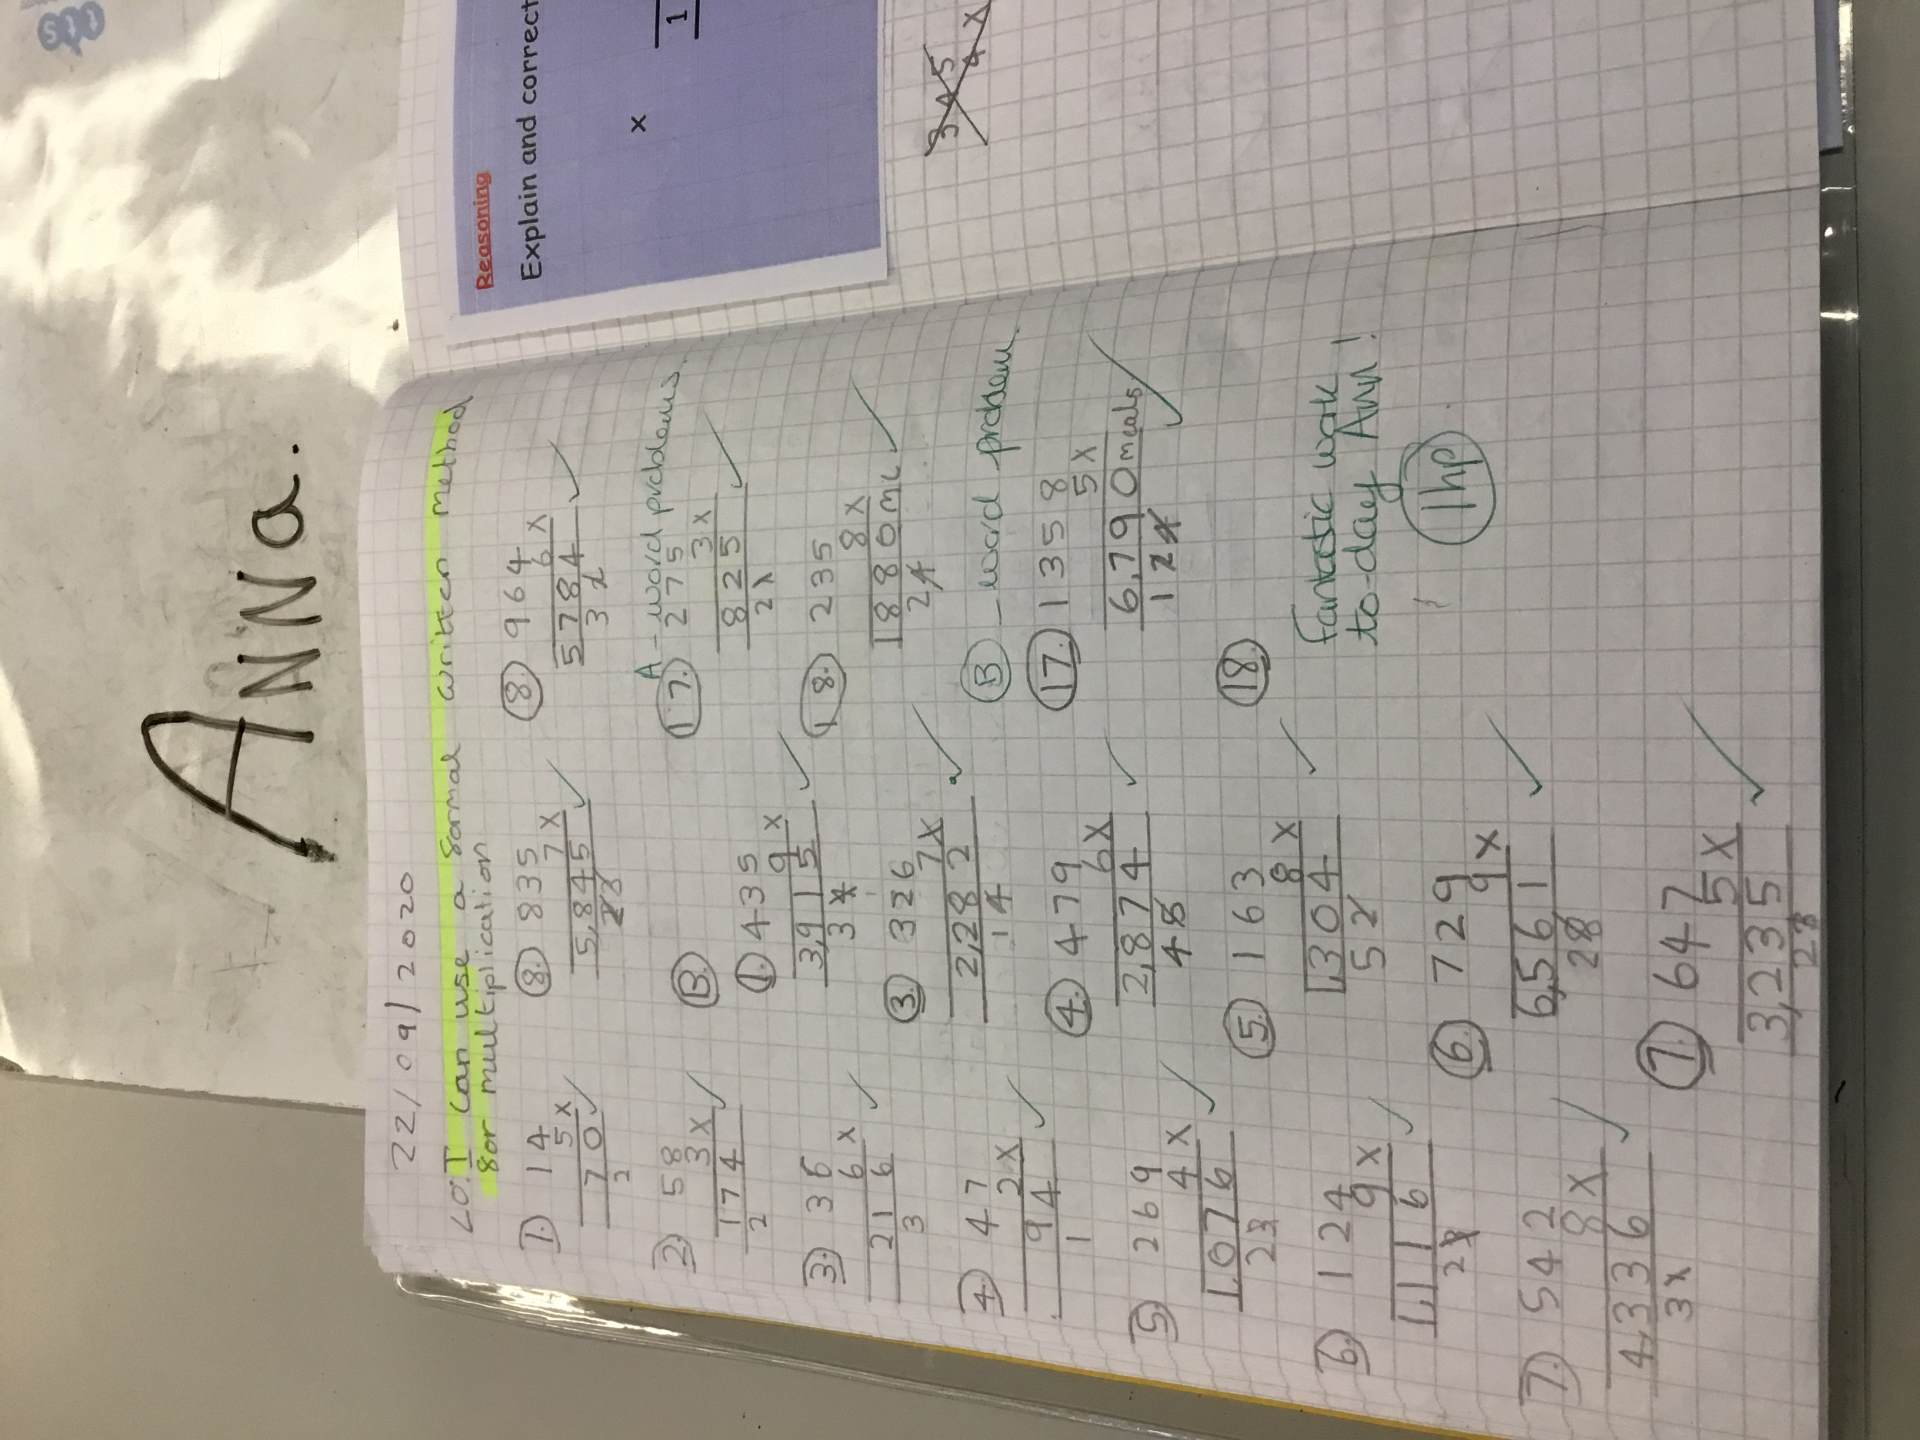 ANNa.
22/09/2020
LO: I can use a formal written method
for multiplication
1. 14
5 x
70
2
2. 58
3 x
174
2
3. 36
6 x
216
3
4. 47
2 x
94
1
5. 269
4 x
1,076
23
6. 124
9 x
1,116
23
7. 542
8 x
4,336
31
8. 835
7 x
5,845
23
B.
1. 435
9 x
3,915
34
3. 326
7 x
2,282
14
4. 479
6 x
2,874
45
5. 163
8 x
1,304
52
6. 729
9 x
6,561
28
7. 647
5 x
3,235
23
8. 964
6 x
5784
32
A - word problems.
17. 275
3 x
825
21
18. 235
8 x
1880 mL
24
B - word problem.
17. 1358
5 x
6,790 meals
124
18.
Fantastic work
to-day Ann!
1hp
Reasoning
Explain and correct
x
1
345
4 x